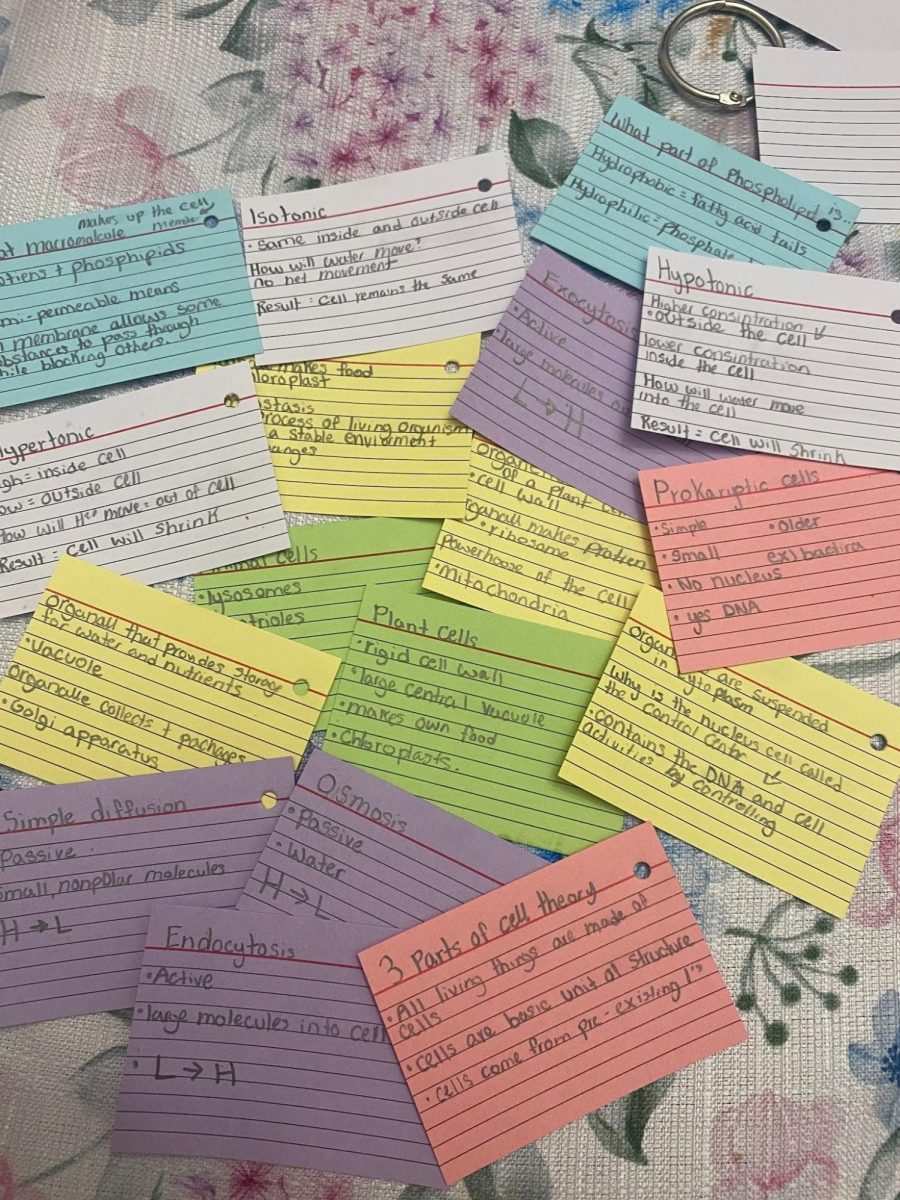 makes up the cell
at macromalcule membrane
otiens + phosphipids
mi-permeable means
membrane allows some
bstances to pass through
hile blocking others.
Isotonic
• Same inside and outside cell
How will water move?
No net movement
Result: Cell remains the same
What part of Phospholipid is...
Hydrophobic = fatty acid tails
Hydrophilic = phosphate
Exocytosis
• Active
• large molecules
L → H
Hypotonic
Higher consintration
• outside the cell
lower consintration
inside the cell
How will water move
into the cell
Result = cell will shrink
makes food
loroplast
stasis
rocess of living organism
a stable enviorment
anges
Hypertonic
igh = inside cell
ow = outside cell
How will H²º move = out of cell
Result = Cell will shrink
organ
of a plant
• cell wall
rganall makes protien
• ribosome
powerhoose of the cell
• Mitochondria
Prokariptic cells
• Simple • Older
• small ex) bactira
• No nucleus
• yes DNA
cells
• lysosomes
trioles
Organall that provides storage
for water and nutrients
• Vacuole
Organalle collects + pachages
• Golgi apparatus
Plant cells
• rigid cell wall
• large central vacuole
• makes own food
• Chloroplasts.
Organ are suspended
in ytoplasm
Why is the nucleus cell called
the control center
• contains the DNA and cell
activities by controlling
Simple diffusion
Passive
small, nonpolar molecules
H → L
Osmosis
• Passive
• Water
H → L
Endocytosis
• Active
• large molecules into cell
• L → H
3 Parts of cell theory
• All living things are made of
cells
• cells are basic unit of structure
• cells come from pre-existing 1's